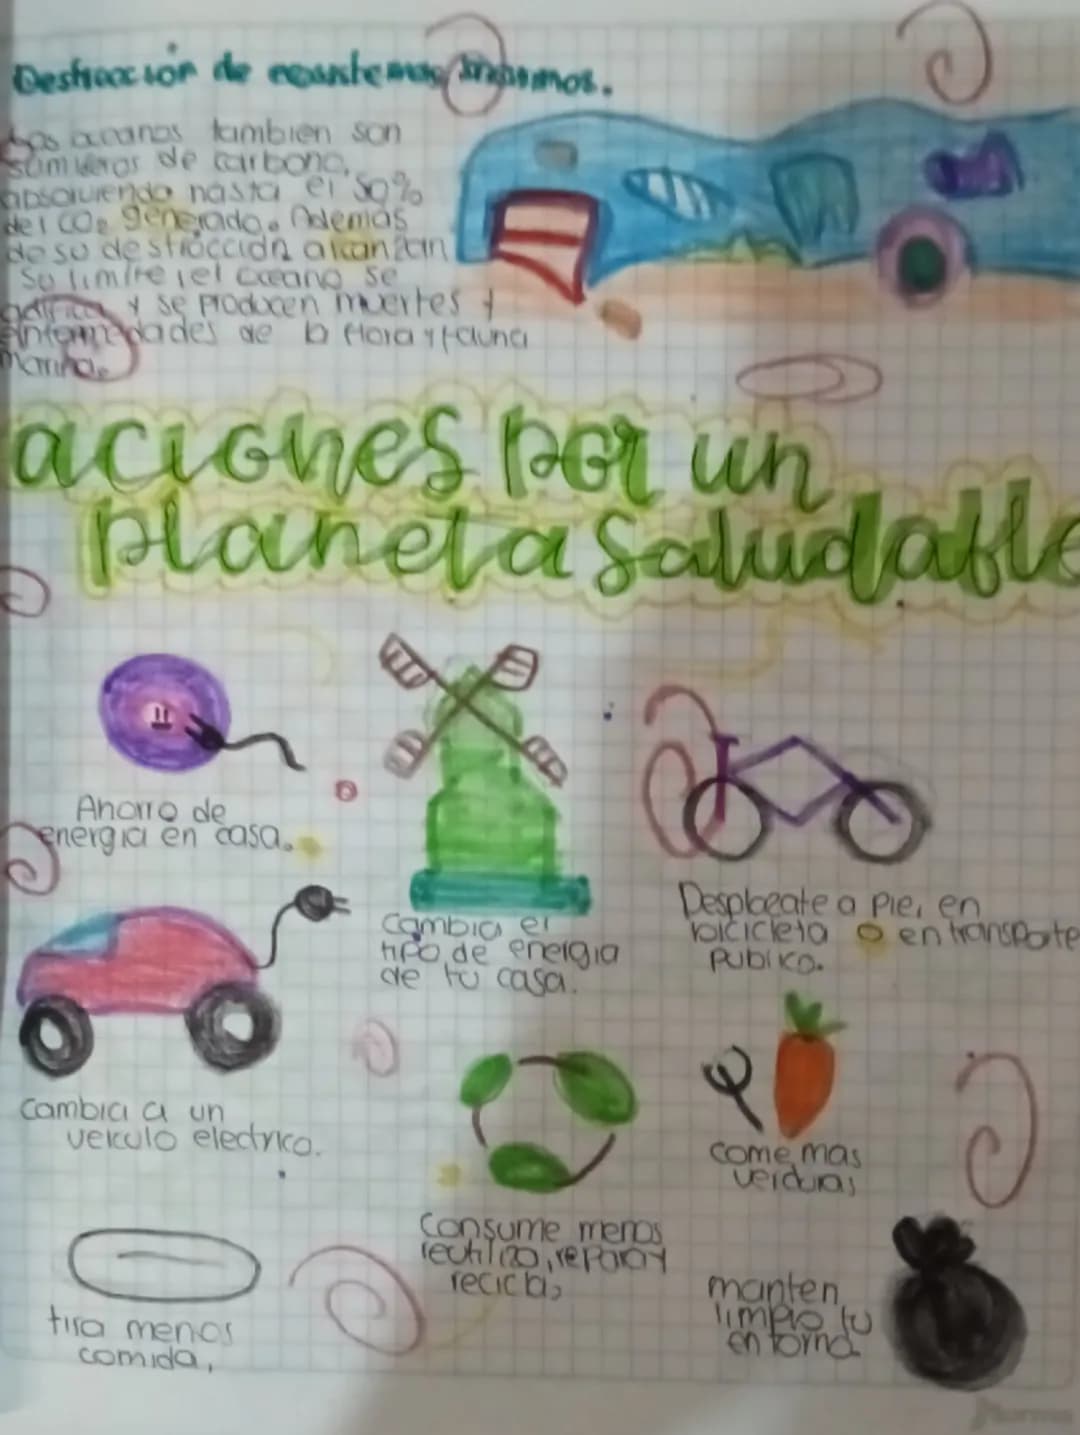 Destrucción de ecosistemas marinos.
Los oceanos tambien son
sumideros de carbono,
absorviendo hasta el 50%
del CO2 generado. Ademas
de su destrucción alcanzan
su limite, el oceano se
acidifica y se producen muertes y
enfermedades de la flora y fauna
marina.
aciones por un
planeta saludable
Ahorro de
energia en casa.
Cambia el
tipo de energia
de tu casa.
Desplaeate a pie, en
bicicleta o en transporte
publico.
Cambia a un
veiculo electrico.
come mas
verduras
Consume menos
reutiliza, repara y
recicla,
manten
limpio tu
entorno.
tira menos
comida,
Norma